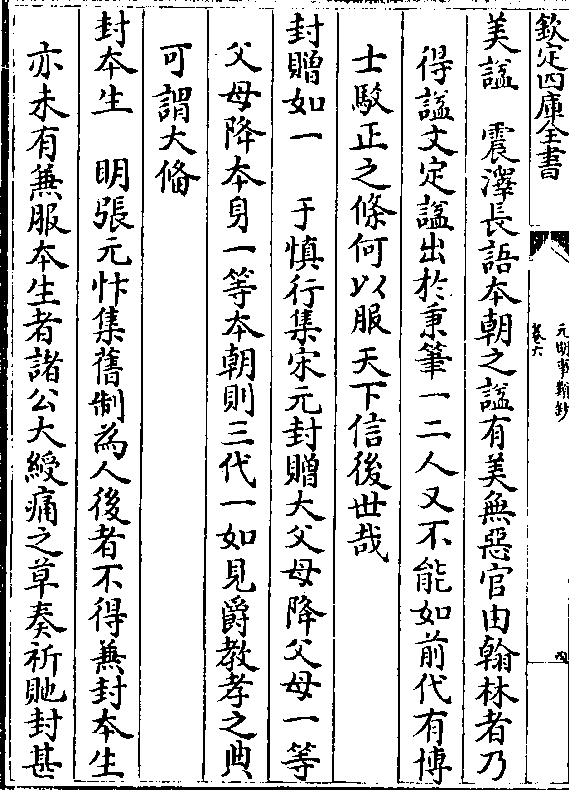 欽定四庫全書
元明事類鈔
卷六
四
美諡　震澤長語本朝之諡有美無惡官由翰林者乃
得諡文定諡出於秉筆一二人又不能如前代有博
士駮正之條何以服天下信後世哉
封贈如一　于慎行集宋元封贈大父母降父母一等
父母降本身一等本朝則三代一如見爵教孝之典
可謂大備
封本生　明張元忭集舊制為人後者不得兼封本生
亦未有兼服本生者諸公大綬痛之草奏祈貤封甚